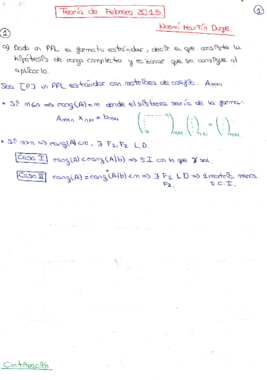 Teoría de Febrero 2015
①
Noemí Martín Duge
①
a) Dado un PPL en formato estándar, decir en que consiste la
hipótesis de rango completo y razonar que se consigue al
aplicarla.
Sea [P] un PPL estándar con matriz de coefic. Amxn
• Si m≤n ⇒ rang(A)=m donde el sistema sería de la forma:
Amxn Xnx1 = bmx1
• Si m>n ⇒ rang(A)<n, ∃ F1, F2 L.D.
Caso I rang(A)<rang(A|b) ⇒ S.I con lo que ∄ sol.
Caso II rang(A)=rang(A|b)<n ⇒ ∃ F1 L.D ⇒ 1 matriz
F2. S.C.I.
Continuación